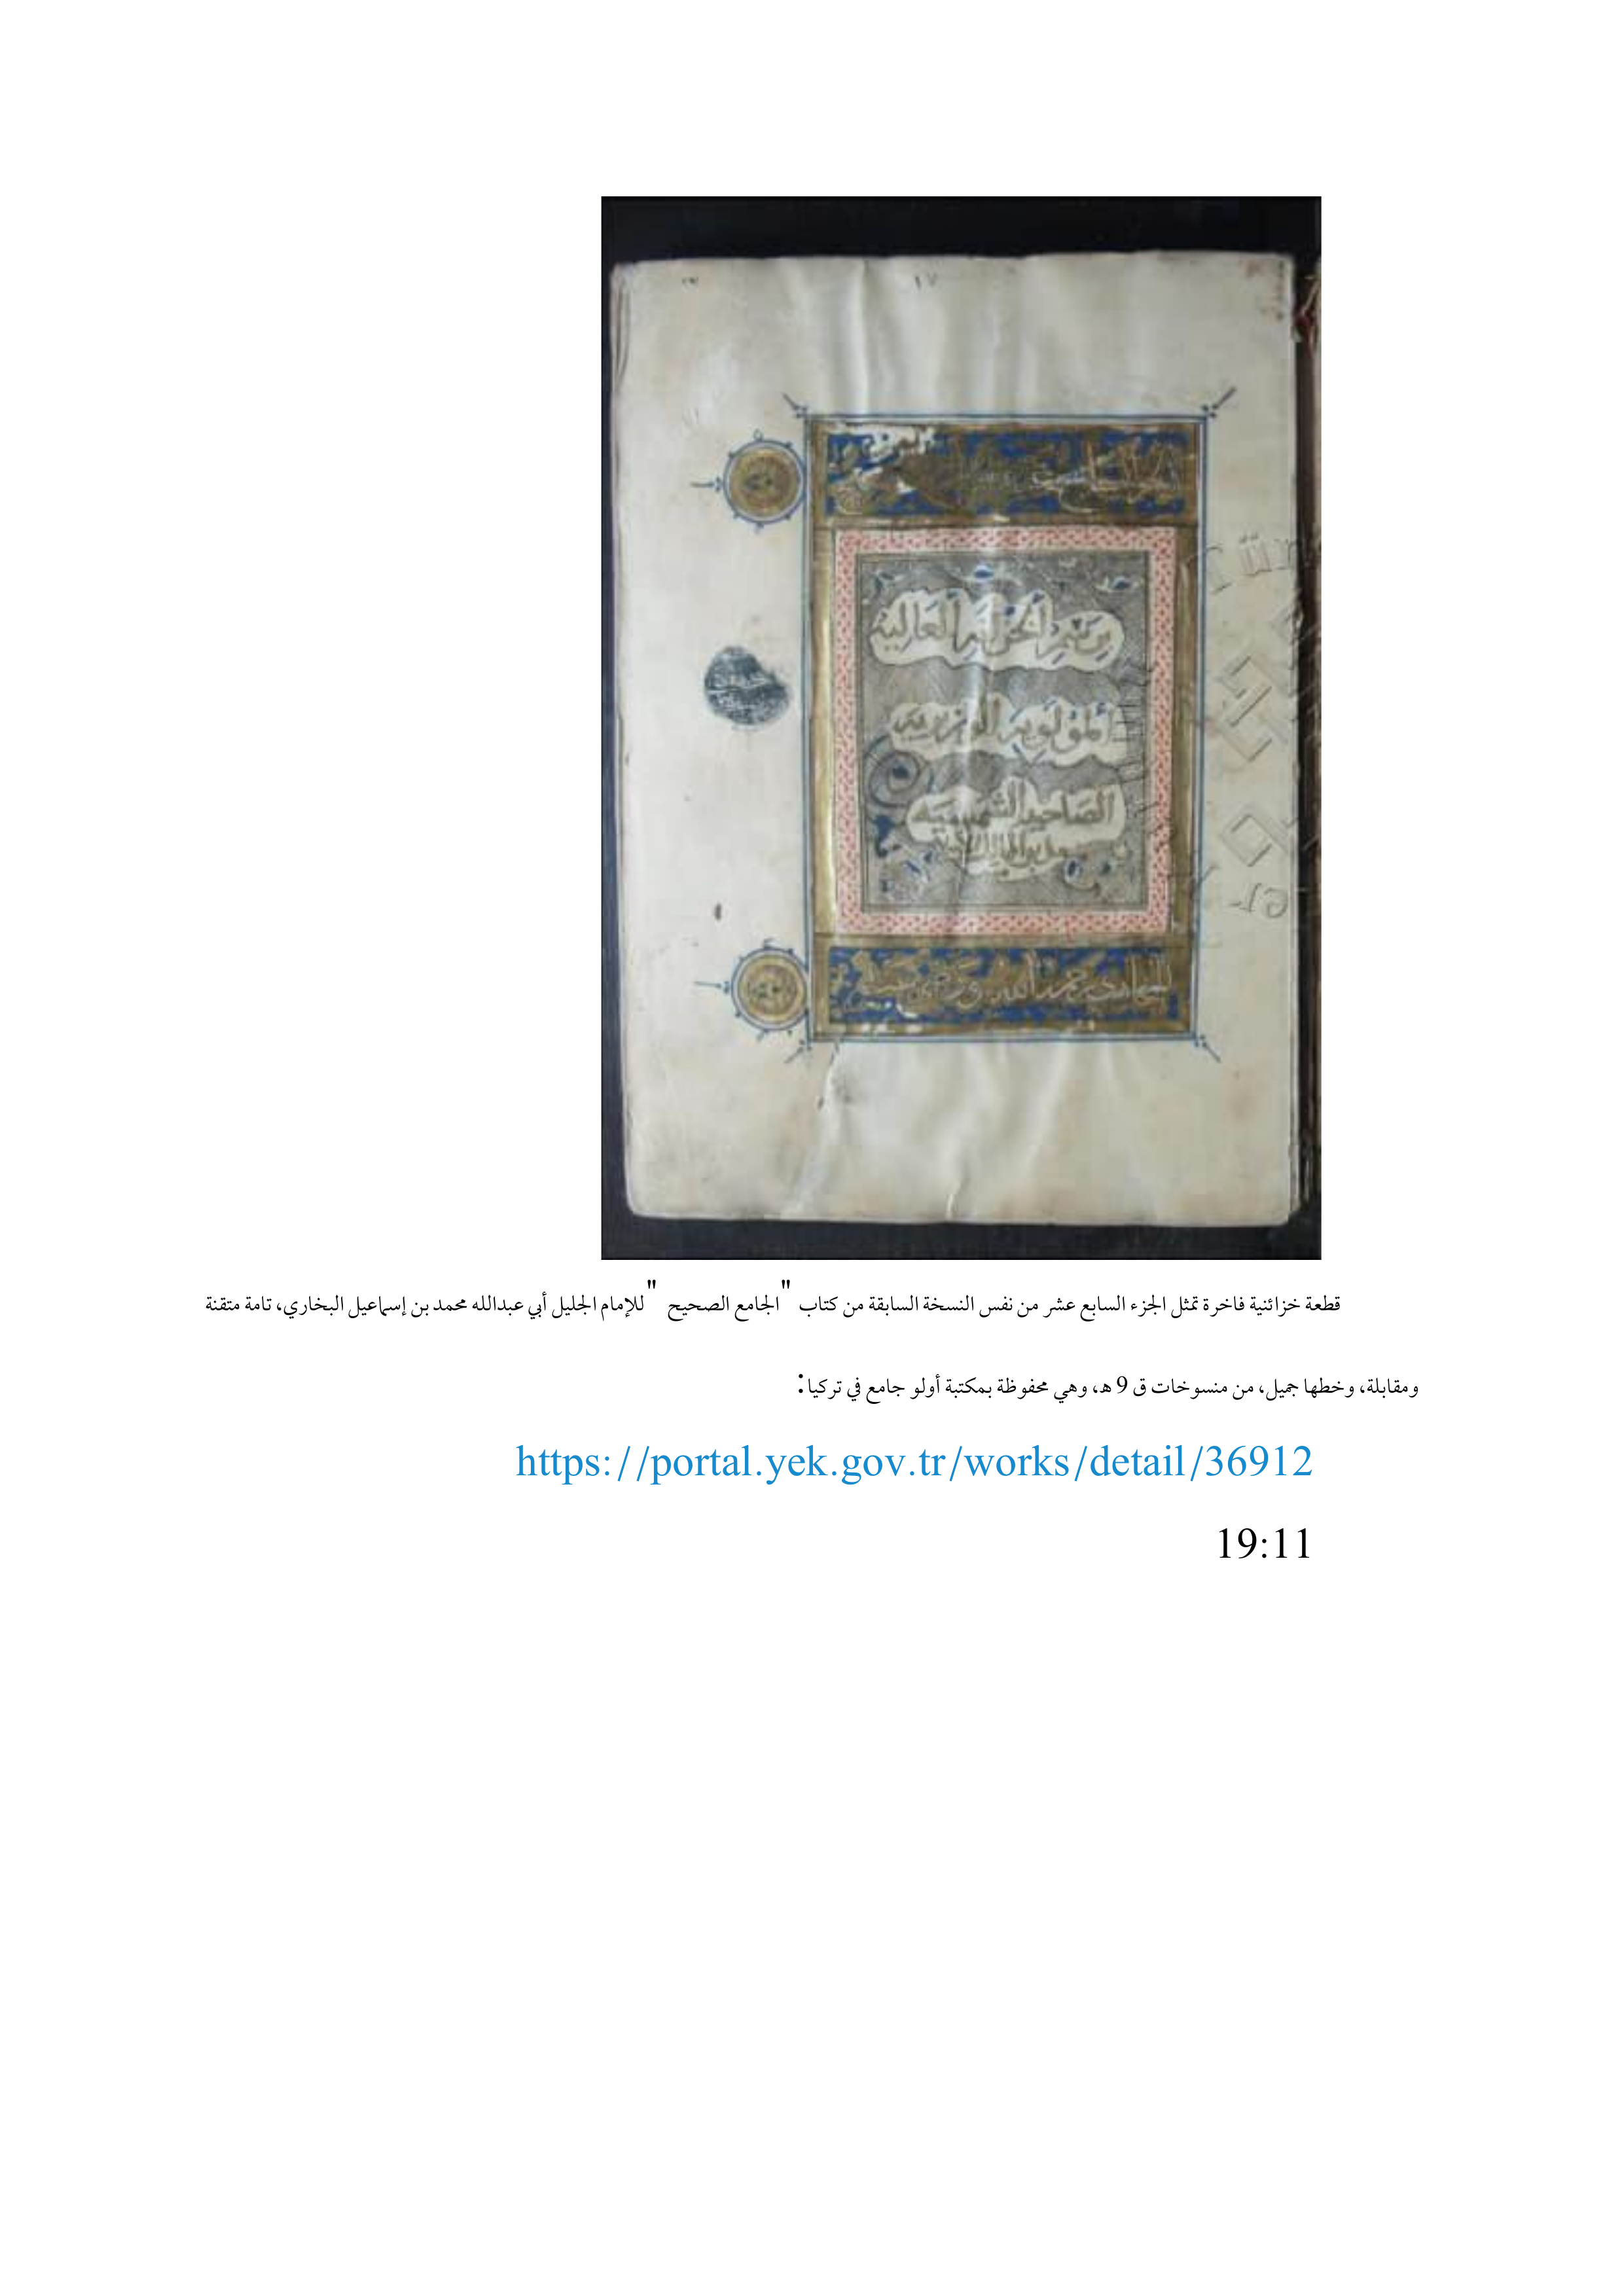 ١٧
برسم الخزانة العالية
المولوية الوزيرية
الصاحبية الشمسية
قطعة خزائنية فاخرة تمثل الجزء السابع عشر من نفس النسخة السابقة من كتاب "الجامع الصحيح" للإمام الجليل أبي عبدالله محمد بن إسماعيل البخاري، تامة متقنة
ومقابلة، وخطها جميل، من منسوخات ق 9 هـ، وهي محفوظة بمكتبة أولو جامع في تركيا:
https://portal.yek.gov.tr/works/detail/36912
19:11